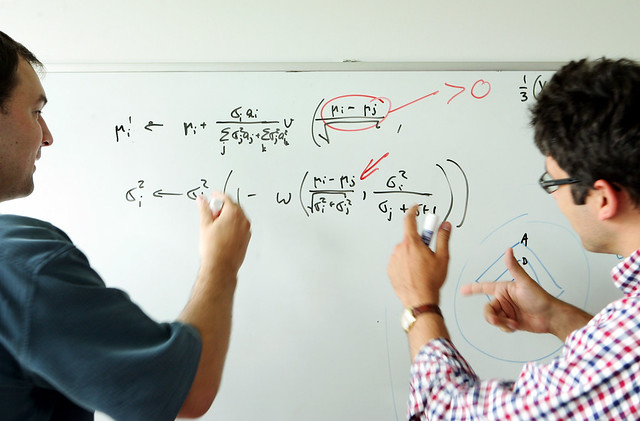 μi' ← μi + σi ai / (Σj σj² aj + Σk σk² ak²) v ( (μi - μj) / √ ² , > 0
1/3 (
σi² ← σi² ( 1 - w ( (μi - μj) / √σi² + σj² , σi² / σj +
A
D